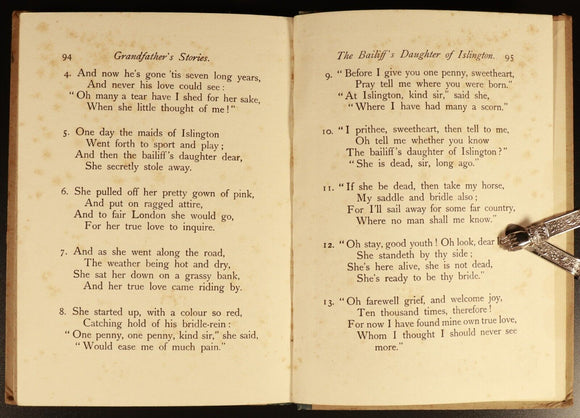 94 Grandfather's Stories.
4. And now he's gone 'tis seven long years,
And never his love could see:
"Oh many a tear have I shed for her sake,
When she little thought of me!"
5. One day the maids of Islington
Went forth to sport and play;
And then the bailiff's daughter dear,
She secretly stole away.
6. She pulled off her pretty gown of pink,
And put on ragged attire,
And to fair London she would go,
For her true love to inquire.
7. And as she went along the road,
The weather being hot and dry,
She sat her down on a grassy bank,
And her true love came riding by.
8. She started up, with a colour so red,
Catching hold of his bridle-rein:
"One penny, one penny, kind sir," she said,
"Would ease me of much pain."
The Bailiff's Daughter of Islington. 95
9. "Before I give you one penny, sweetheart,
Pray tell me where you were born."
"At Islington, kind sir," said she,
"Where I have had many a scorn."
10. "I prithee, sweetheart, then tell to me,
Oh tell me whether you know
The bailiff's daughter of Islington?"
"She is dead, sir, long ago."
11. "If she be dead, then take my horse,
My saddle and bridle also;
For I'll sail away for some far country,
Where no man shall me know."
12. "Oh stay, good youth! Oh look, dear
She standeth by thy side;
She's here alive, she is not dead,
She's ready to be thy bride."
13. "Oh farewell grief, and welcome joy,
Ten thousand times, therefore!
For now I have found mine own true love,
Whom I thought I should never see
more."